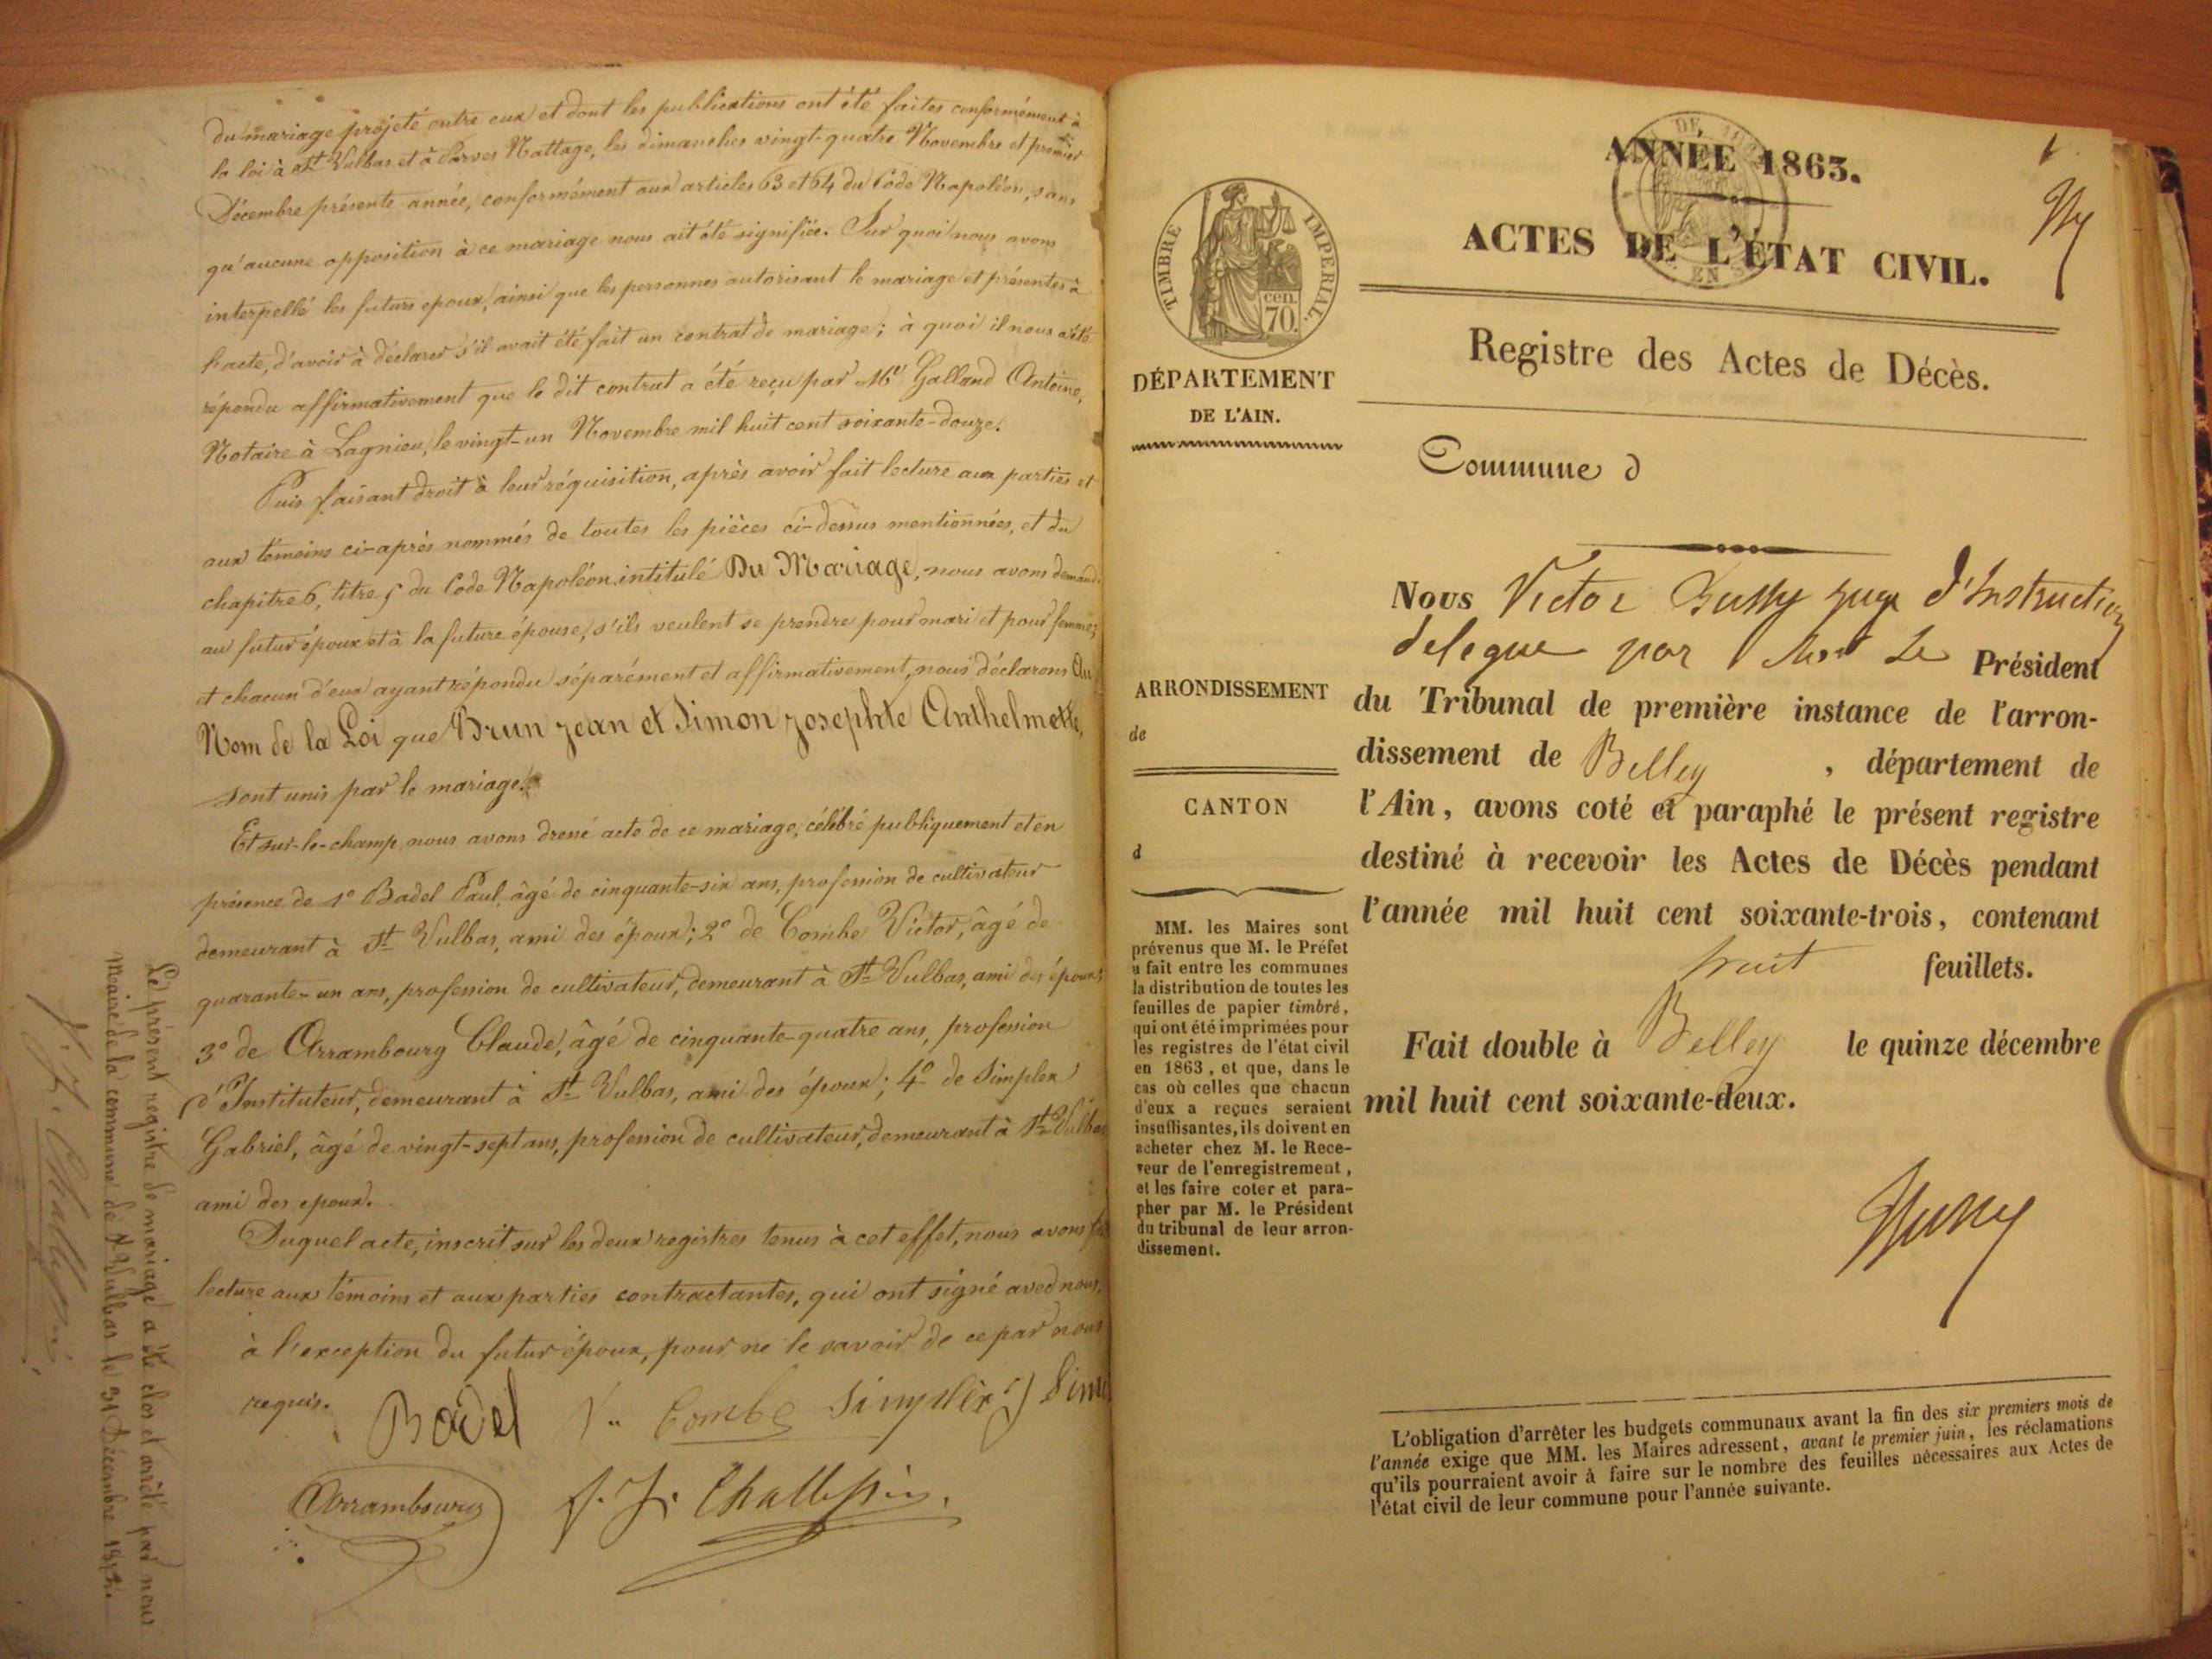 du mariage projeté entre eux et dont les publications ont été faites conformément à
la loi à St Vulbas et à Parves Nattage, les dimanches vingt-quatre Novembre et premier
Décembre présente année, conformément aux articles 63 et 64 du Code Napoléon, sans
qu'aucune opposition à ce mariage nous ait été signifiée. Sur quoi nous avons
interpellé les futurs epoux, ainsi que les personnes autorisant le mariage et présentes à
l'acte, d'avoir à déclarer s'il avait été fait un contrat de mariage; à quoi il nous a été
répondu affirmativement que le dit contrat a été reçu par Me Galland Antoine,
Notaire à Lagnieu, le vingt-un Novembre mil huit cent soixante-douze.
Puis faisant droit à leur réquisition, après avoir fait lecture aux parties et
aux témoins ci-après nommés de toutes les pièces ci-dessus mentionnées, et du
chapitre 6, titre 5 du Code Napoléon intitulé Du Mariage, nous avons demandé
au futur époux et à la future épouse, s'ils veulent se prendre pour mari et pour femme;
et chacun d'eux ayant répondu séparément et affirmativement, nous déclarons Au
Nom de la Loi que Brun Jean et Simon Josephte Anthelmette,
sont unis par le mariage.
Et sur-le-champ nous avons dressé acte de ce mariage, célébré publiquement et en
présence de 1° Badel Paul, âgé de cinquante-six ans, profession de cultivateur
demeurant à St Vulbas, ami des époux; 2° de Combe Victor, âgé de
quarante-un ans, profession de cultivateur, demeurant à St Vulbas, ami des époux;
3° de Arrambourg Claude, âgé de cinquante-quatre ans, profession
d'Instituteur, demeurant à St Vulbas, ami des époux; 4° de Simplex
Gabriel, âgé de vingt-sept ans, profession de cultivateur, demeurant à St Vulbas
ami des epoux.
Duquel acte, inscrit sur les deux registres tenus à cet effet, nous avons fait
lecture aux témoins et aux parties contractantes, qui ont signé avec nous,
à l'exception du futur époux, pour ne le savoir de ce par nous
requis.
Badel Combe Simplex J Simo
Arrambourg
Le présent registre de mariage a été clos et arrêté par nous
Maire de la commune de St Vulbas le 31 Décembre 1872.
ANNÉE 1863.
1
ACTES DE L'ÉTAT CIVIL.
Registre des Actes de Décès.
TIMBRE IMPERIAL
cen. 70.
DÉPARTEMENT
DE L'AIN.
Commune d
ARRONDISSEMENT
de
CANTON
d
MM. les Maires sont
prévenus que M. le Préfet
a fait entre les communes
la distribution de toutes les
feuilles de papier timbré,
qui ont été imprimées pour
les registres de l'état civil
en 1863, et que, dans le
cas où celles que chacun
d'eux a reçues seraient
insuffisantes, ils doivent en
acheter chez M. le Rece-
veur de l'enregistrement,
et les faire coter et para-
pher par M. le Président
du tribunal de leur arron-
dissement.
Nous Victor juge d'Instruction
delegue par Le Président
du Tribunal de première instance de l'arron-
dissement de Belley, département de
l'Ain, avons coté et paraphé le présent registre
destiné à recevoir les Actes de Décès pendant
l'année mil huit cent soixante-trois, contenant
huit feuillets.
Fait double à Belley le quinze décembre
mil huit cent soixante-deux.
L'obligation d'arrêter les budgets communaux avant la fin des six premiers mois de
l'année exige que MM. les Maires adressent, avant le premier juin, les réclamations
qu'ils pourraient avoir à faire sur le nombre des feuilles nécessaires aux Actes de
l'état civil de leur commune pour l'année suivante.